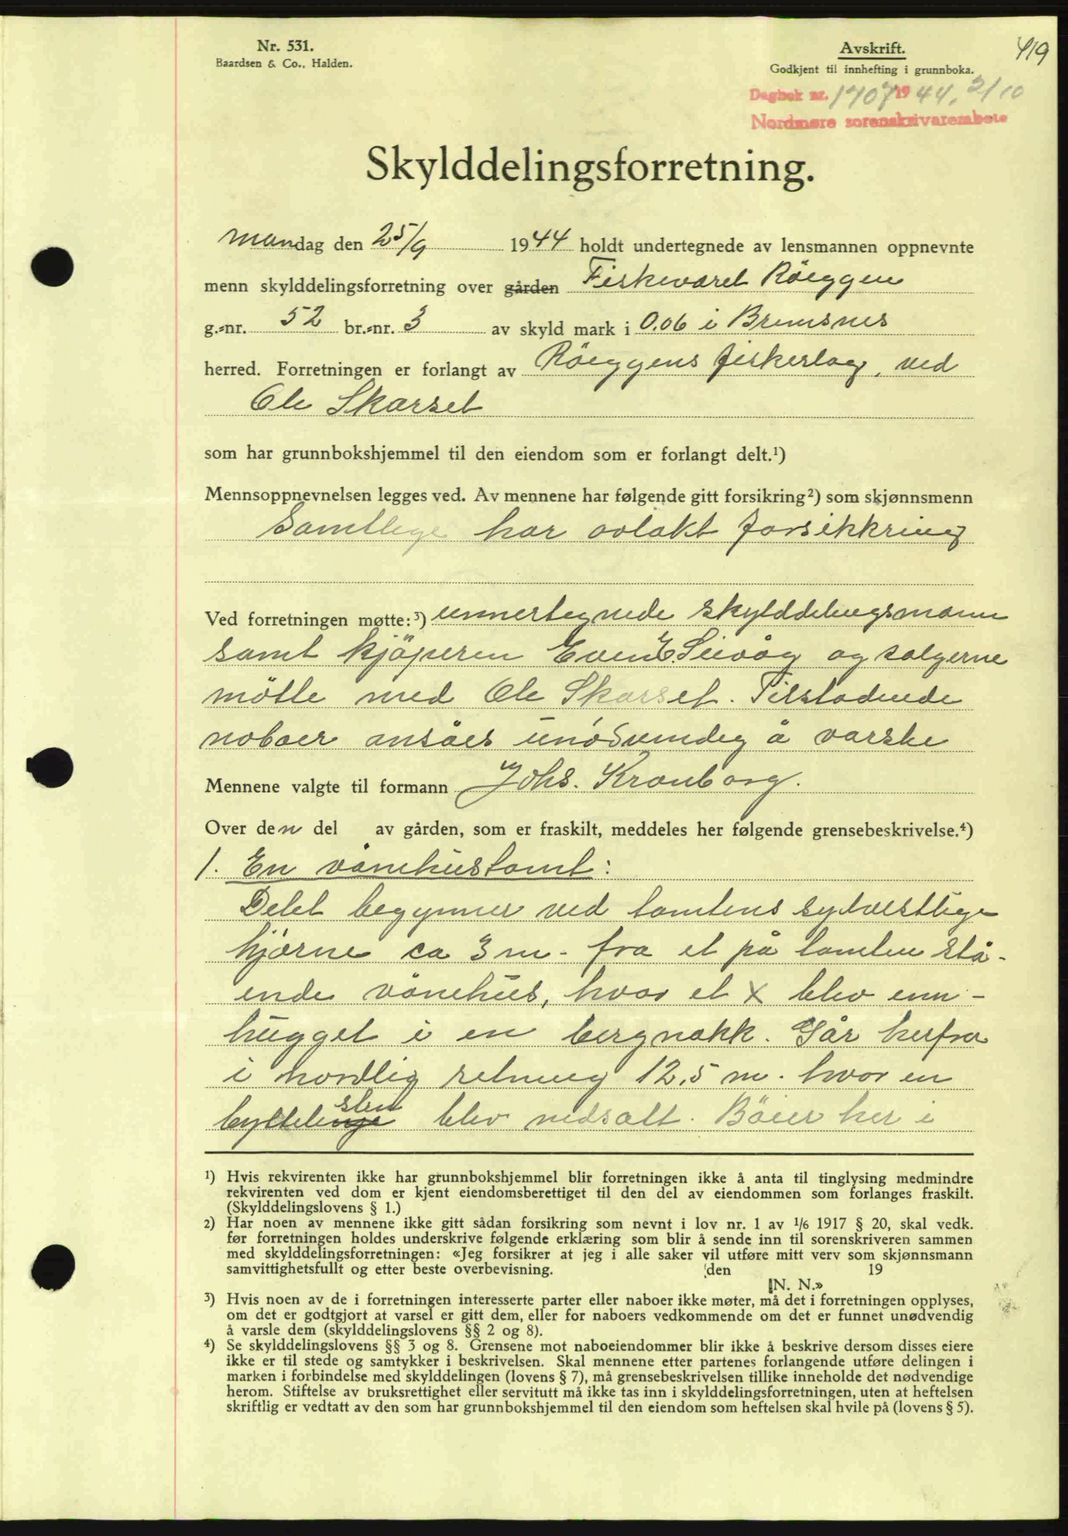 Nr. 531.
Baardsen & Co., Halden.
Avskrift.
Godkjent til innhefting i grunnboka.
419
Dagbok nr. 1707 1944, 2/10
Nordmøre sorenskrivarembete
Skylddelingsforretning.
mandag den 25/9 1944 holdt undertegnede av lensmannen oppnevnte
menn skylddelingsforretning over gården Fiskeværet Röeggen
g.-nr. 52 br.-nr. 3 av skyld mark i 0.06 i Bremsnes
herred. Forretningen er forlangt av Röeggens fiskerlag, ved
Ole Skarset
som har grunnbokshjemmel til den eiendom som er forlangt delt.¹)
Mennsoppnevnelsen legges ved. Av mennene har følgende gitt forsikring²) som skjønnsmenn
Samtlige har avlakt forsikkring
Ved forretningen møtte:³) unnertegnede skylddelingsmenn
samt kjöperen Even E. Seivåg og selgerne
mötte med Ole Skarset. Tilstödende
naboer ansåes unödvendig å varske
Mennene valgte til formann Johs. Kranborg.
Over den del av gården, som er fraskilt, meddeles her følgende grensebeskrivelse.⁴)
1. En vånehustomt:
Delet begynner ved tomtens sydvestlige
hjörne ca 3 m. fra et på tomten stå-
ende vånehus, hvor et x blev inn-
hugget i en bergnakk. Går herfra
i nordlig retning 12,5 m. hvor en
byttelinje sten blev nedsatt. Böier her i
¹) Hvis rekvirenten ikke har grunnbokshjemmel blir forretningen ikke å anta til tinglysing medmindre
rekvirenten ved dom er kjent eiendomsberettiget til den del av eiendommen som forlanges fraskilt.
(Skylddelingslovens § 1.)
²) Har noen av mennene ikke gitt sådan forsikring som nevnt i lov nr. 1 av ¹/₆ 1917 § 20, skal vedk.
før forretningen holdes underskrive følgende erklæring som blir å sende inn til sorenskriveren sammen
med skylddelingsforretningen: «Jeg forsikrer at jeg i alle saker vil utføre mitt verv som skjønnsmann
samvittighetsfullt og etter beste overbevisning. den 19
N. N.»
³) Hvis noen av de i forretningen interesserte parter eller naboer ikke møter, må det i forretningen opplyses,
om det er godtgjort at varsel er gitt dem, eller for naboers vedkommende om det er funnet unødvendig
å varsle dem (skylddelingslovens §§ 2 og 8).
⁴) Se skylddelingslovens §§ 3 og 8. Grensene mot naboeiendommer blir ikke å beskrive dersom disses eiere
ikke er til stede og samtykker i beskrivelsen. Skal mennene etter partenes forlangende utføre delingen i
marken i forbindelse med skylddelingen (lovens § 7), må grensebeskrivelsen tillike inneholde det nødvendige
herom. Stiftelse av bruksrettighet eller servitutt må ikke tas inn i skylddelingsforretningen, uten at heftelsen
skriftlig er vedtatt av den som har grunnbokshjemmel til den eiendom som heftelsen skal hvile på (lovens § 5).